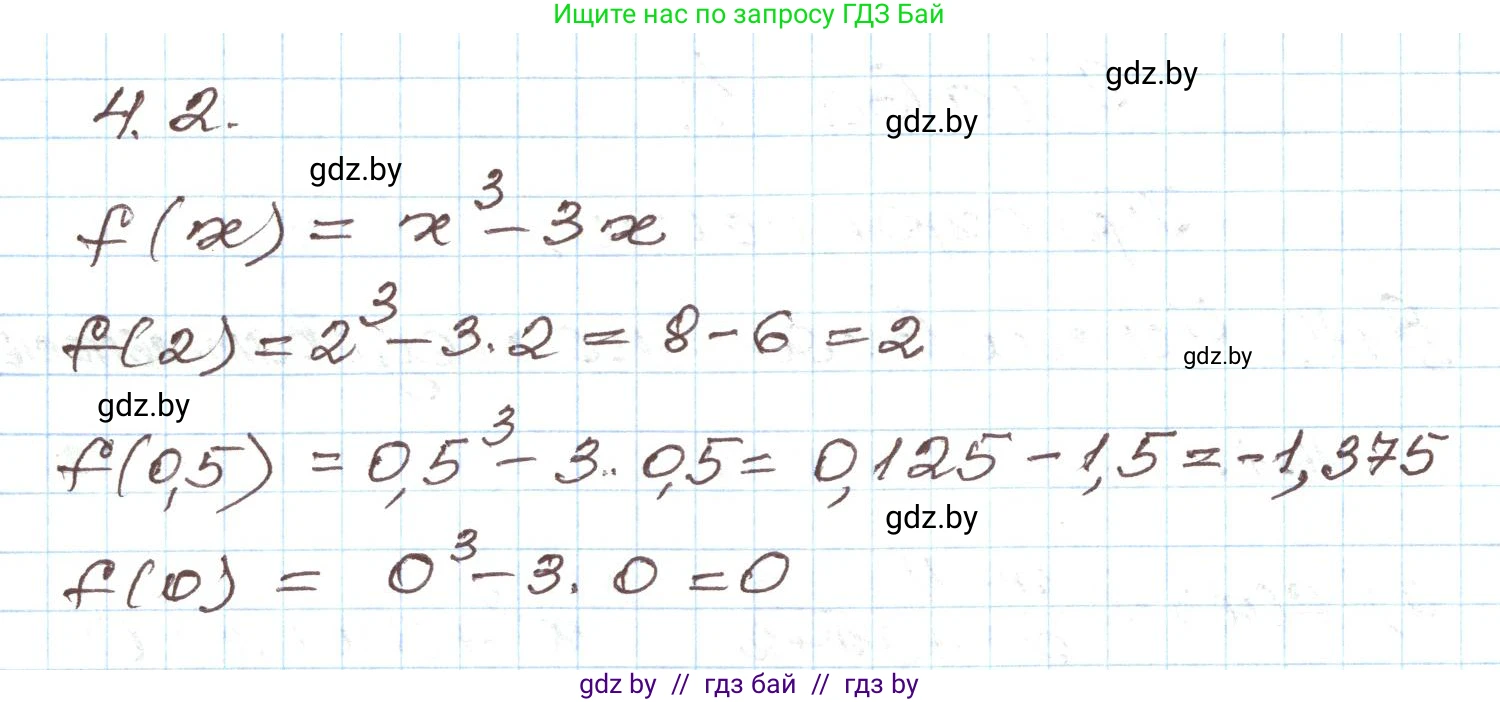 Ищите нас по запросу ГДЗ Бай
gdz.by
gdz.by
4.2.
gdz.by
f(x) = x³ - 3x
f(2) = 2³ - 3·2 = 8 - 6 = 2
gdz.by
gdz.by
f(0,5) = 0,5³ - 3·0,5 = 0,125 - 1,5 = -1,375
gdz.by
f(0) = 0³ - 3·0 = 0
gdz by // гдз бай // гдз by